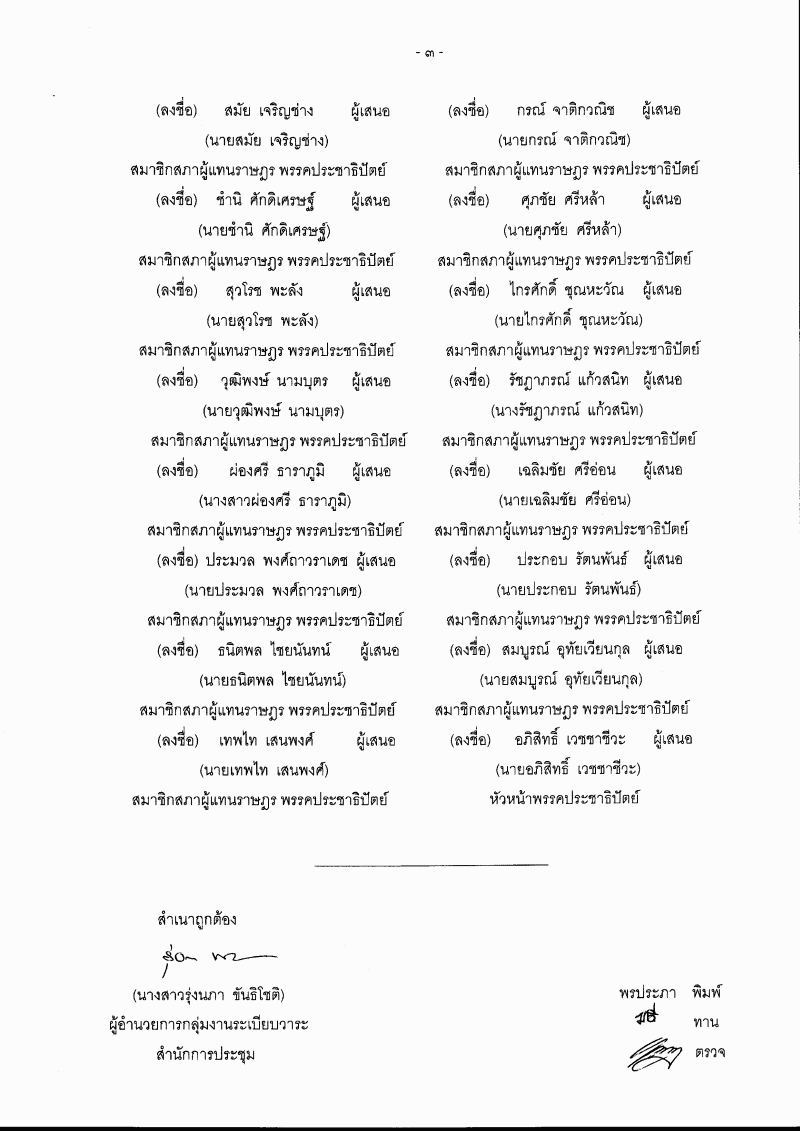 - ๓ -
(ลงชื่อ) สมัย เจริญช่าง ผู้เสนอ
(นายสมัย เจริญช่าง)
สมาชิกสภาผู้แทนราษฎร พรรคประชาธิปัตย์
(ลงชื่อ) ชำนิ ศักดิเศรษฐ์ ผู้เสนอ
(นายชำนิ ศักดิเศรษฐ์)
สมาชิกสภาผู้แทนราษฎร พรรคประชาธิปัตย์
(ลงชื่อ) สุวโรช พะลัง ผู้เสนอ
(นายสุวโรช พะลัง)
สมาชิกสภาผู้แทนราษฎร พรรคประชาธิปัตย์
(ลงชื่อ) วุฒิพงษ์ นามบุตร ผู้เสนอ
(นายวุฒิพงษ์ นามบุตร)
สมาชิกสภาผู้แทนราษฎร พรรคประชาธิปัตย์
(ลงชื่อ) ผ่องศรี ธาราภูมิ ผู้เสนอ
(นางสาวผ่องศรี ธาราภูมิ)
สมาชิกสภาผู้แทนราษฎร พรรคประชาธิปัตย์
(ลงชื่อ) ประมวล พงศ์ถาวราเดช ผู้เสนอ
(นายประมวล พงศ์ถาวราเดช)
สมาชิกสภาผู้แทนราษฎร พรรคประชาธิปัตย์
(ลงชื่อ) ธนิตพล ไชยนันทน์ ผู้เสนอ
(นายธนิตพล ไชยนันทน์)
สมาชิกสภาผู้แทนราษฎร พรรคประชาธิปัตย์
(ลงชื่อ) เทพไท เสนพงศ์ ผู้เสนอ
(นายเทพไท เสนพงศ์)
สมาชิกสภาผู้แทนราษฎร พรรคประชาธิปัตย์
(ลงชื่อ) กรณ์ จาติกวณิช ผู้เสนอ
(นายกรณ์ จาติกวณิช)
สมาชิกสภาผู้แทนราษฎร พรรคประชาธิปัตย์
(ลงชื่อ) ศุภชัย ศรีหล้า ผู้เสนอ
(นายศุภชัย ศรีหล้า)
สมาชิกสภาผู้แทนราษฎร พรรคประชาธิปัตย์
(ลงชื่อ) ไกรศักดิ์ ชุณหะวัณ ผู้เสนอ
(นายไกรศักดิ์ ชุณหะวัณ)
สมาชิกสภาผู้แทนราษฎร พรรคประชาธิปัตย์
(ลงชื่อ) รัชฎาภรณ์ แก้วสนิท ผู้เสนอ
(นางรัชฎาภรณ์ แก้วสนิท)
สมาชิกสภาผู้แทนราษฎร พรรคประชาธิปัตย์
(ลงชื่อ) เฉลิมชัย ศรีอ่อน ผู้เสนอ
(นายเฉลิมชัย ศรีอ่อน)
สมาชิกสภาผู้แทนราษฎร พรรคประชาธิปัตย์
(ลงชื่อ) ประกอบ รัตนพันธ์ ผู้เสนอ
(นายประกอบ รัตนพันธ์)
สมาชิกสภาผู้แทนราษฎร พรรคประชาธิปัตย์
(ลงชื่อ) สมบูรณ์ อุทัยเวียนกุล ผู้เสนอ
(นายสมบูรณ์ อุทัยเวียนกุล)
สมาชิกสภาผู้แทนราษฎร พรรคประชาธิปัตย์
(ลงชื่อ) อภิสิทธิ์ เวชชาชีวะ ผู้เสนอ
(นายอภิสิทธิ์ เวชชาชีวะ)
หัวหน้าพรรคประชาธิปัตย์
สำเนาถูกต้อง
(นางสาวรุ่งนภา ขันธิโชติ)
ผู้อำนวยการกลุ่มงานระเบียบวาระ
สำนักการประชุม
พรประภา พิมพ์
ทาน
ตรวจ